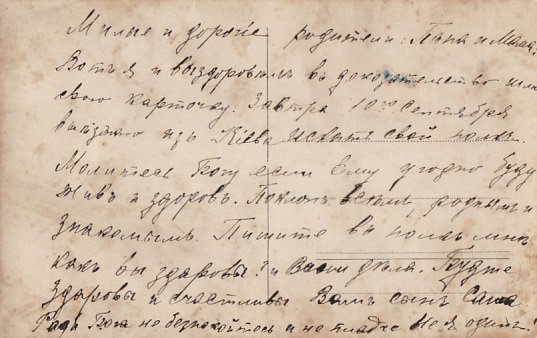 Милые и дорогіе родители: Папа и Мама.
Вотъ я и выздоровилъ въ доказательство шлю
свою карточку. Завтра 10го Сентября
выѣзжаю изъ Кіева искать свой полкъ.
Молитесь Богу если Ему угодно буду
живъ и здоровъ. Поклонъ всѣмъ роднымъ и
знакомымъ. Пишите въ полкъ мнѣ
какъ вы здоровы? и Ваши дѣла. Будте
здаровы и счастливы Вашъ сынъ Саша
Ради Бога не безпокойтесь и не плачте не я одинъ!